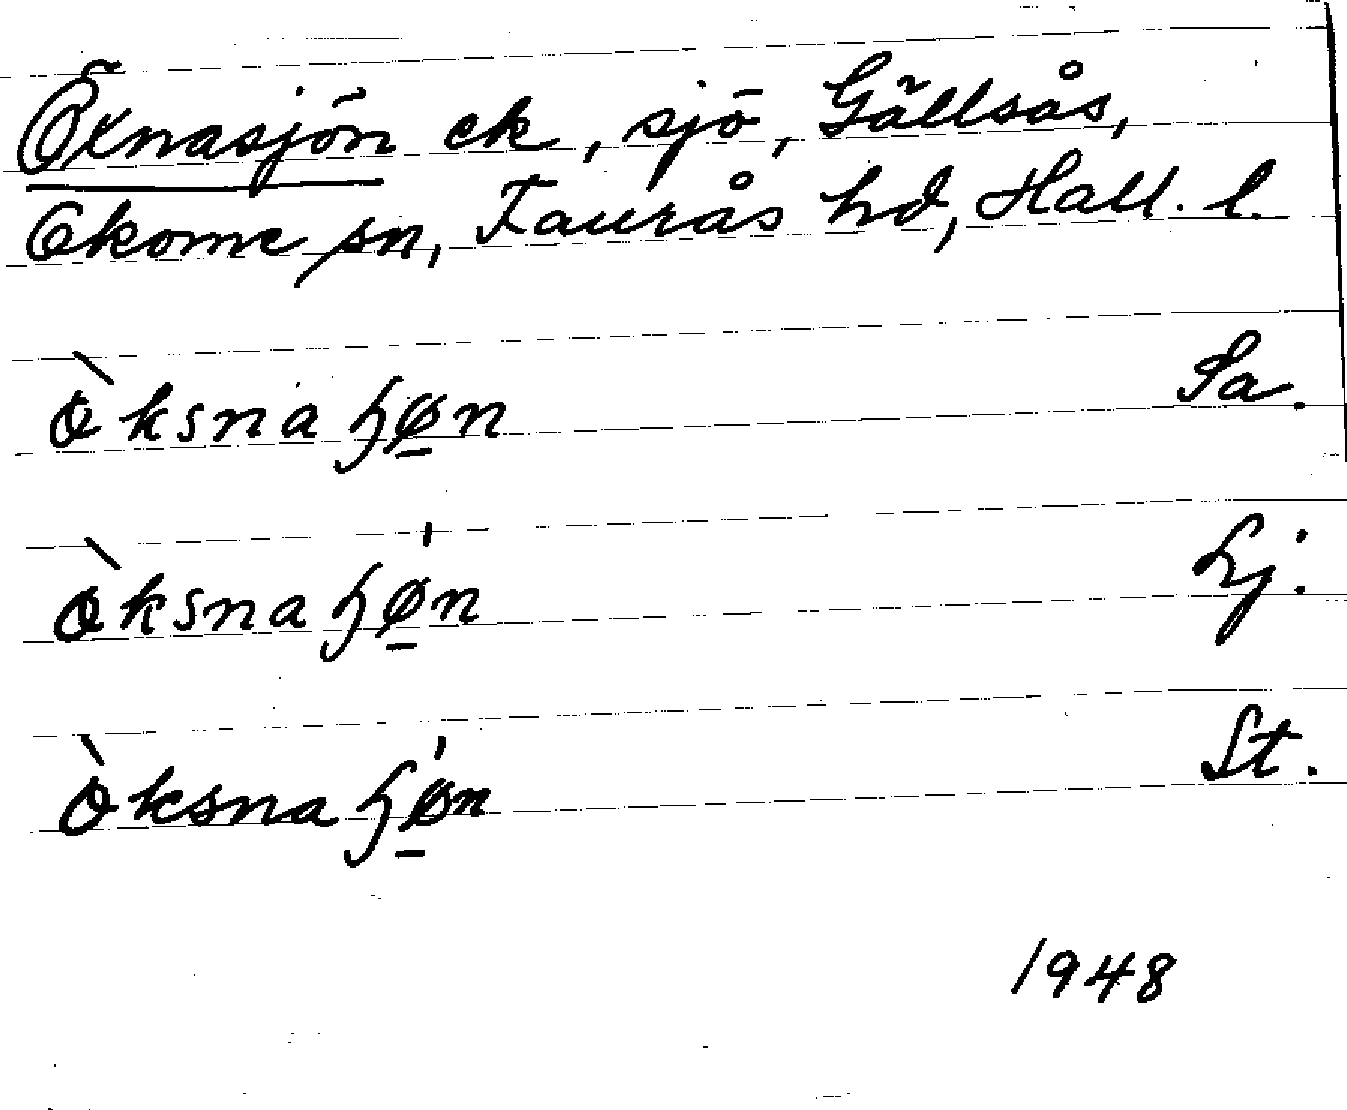 Öxnasjön ek, sjö, Gällsås,
Okome sn, Faurås hd, Hall. l.
Sa.
Lj.
St.
1948